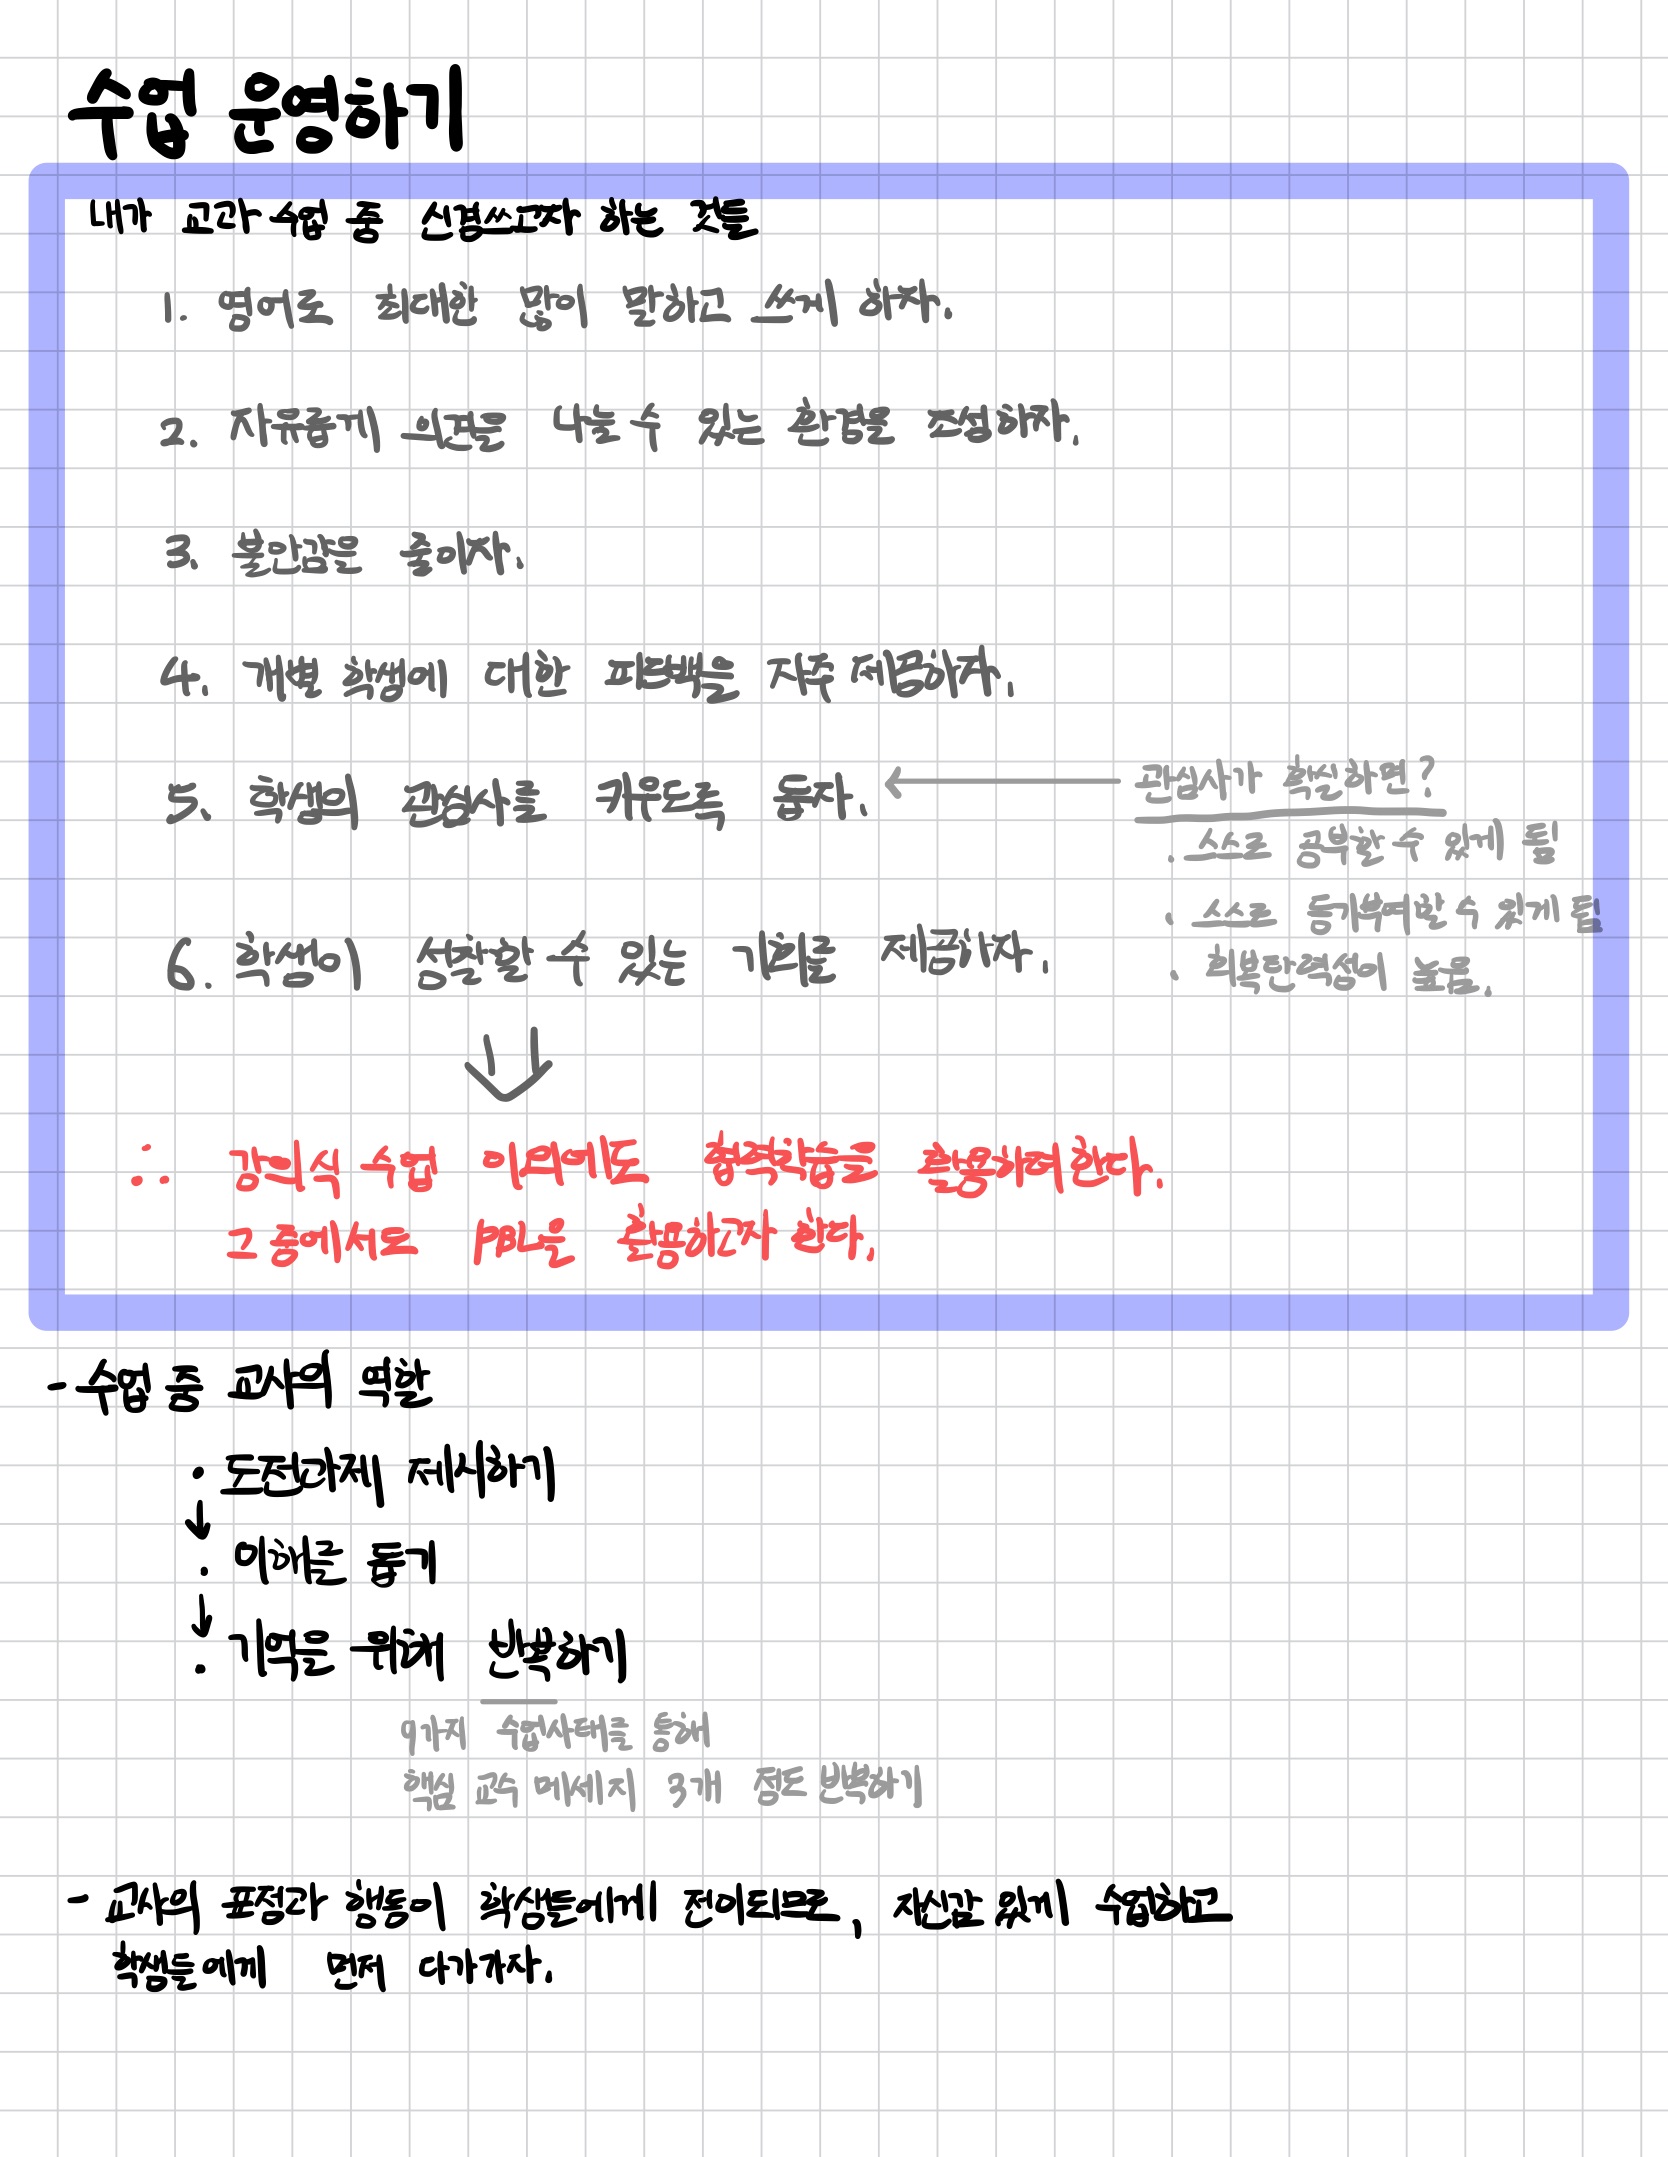 수업 운영하기
내가 교과 수업 중 신경쓰고자 하는 것들
1. 영어로 최대한 많이 말하고 쓰게 하자.
2. 자유롭게 의견을 나눌 수 있는 환경을 조성하자.
3. 불안감을 줄이자.
4. 개별 학생에 대한 피드백을 자주 제공하자.
5. 학생의 관심사를 키우도록 돕자.
관심사가 확실하면?
· 스스로 공부할 수 있게 됨
· 스스로 동기부여할 수 있게 됨
· 회복탄력성이 높음.
6. 학생이 성찰할 수 있는 기회를 제공하자.
∴ 강의식 수업 이외에도 협력학습을 활용하려 한다.
그 중에서도 PBL을 활용하고자 한다.
- 수업 중 교사의 역할
· 도전과제 제시하기
↓
· 이해를 돕기
↓
· 기억을 위해 반복하기
9가지 수업사태를 통해
핵심 교수 메세지 3개 정도 반복하기
- 교사의 표정과 행동이 학생들에게 전이되므로, 자신감 있게 수업하고
학생들에게 먼저 다가가자.